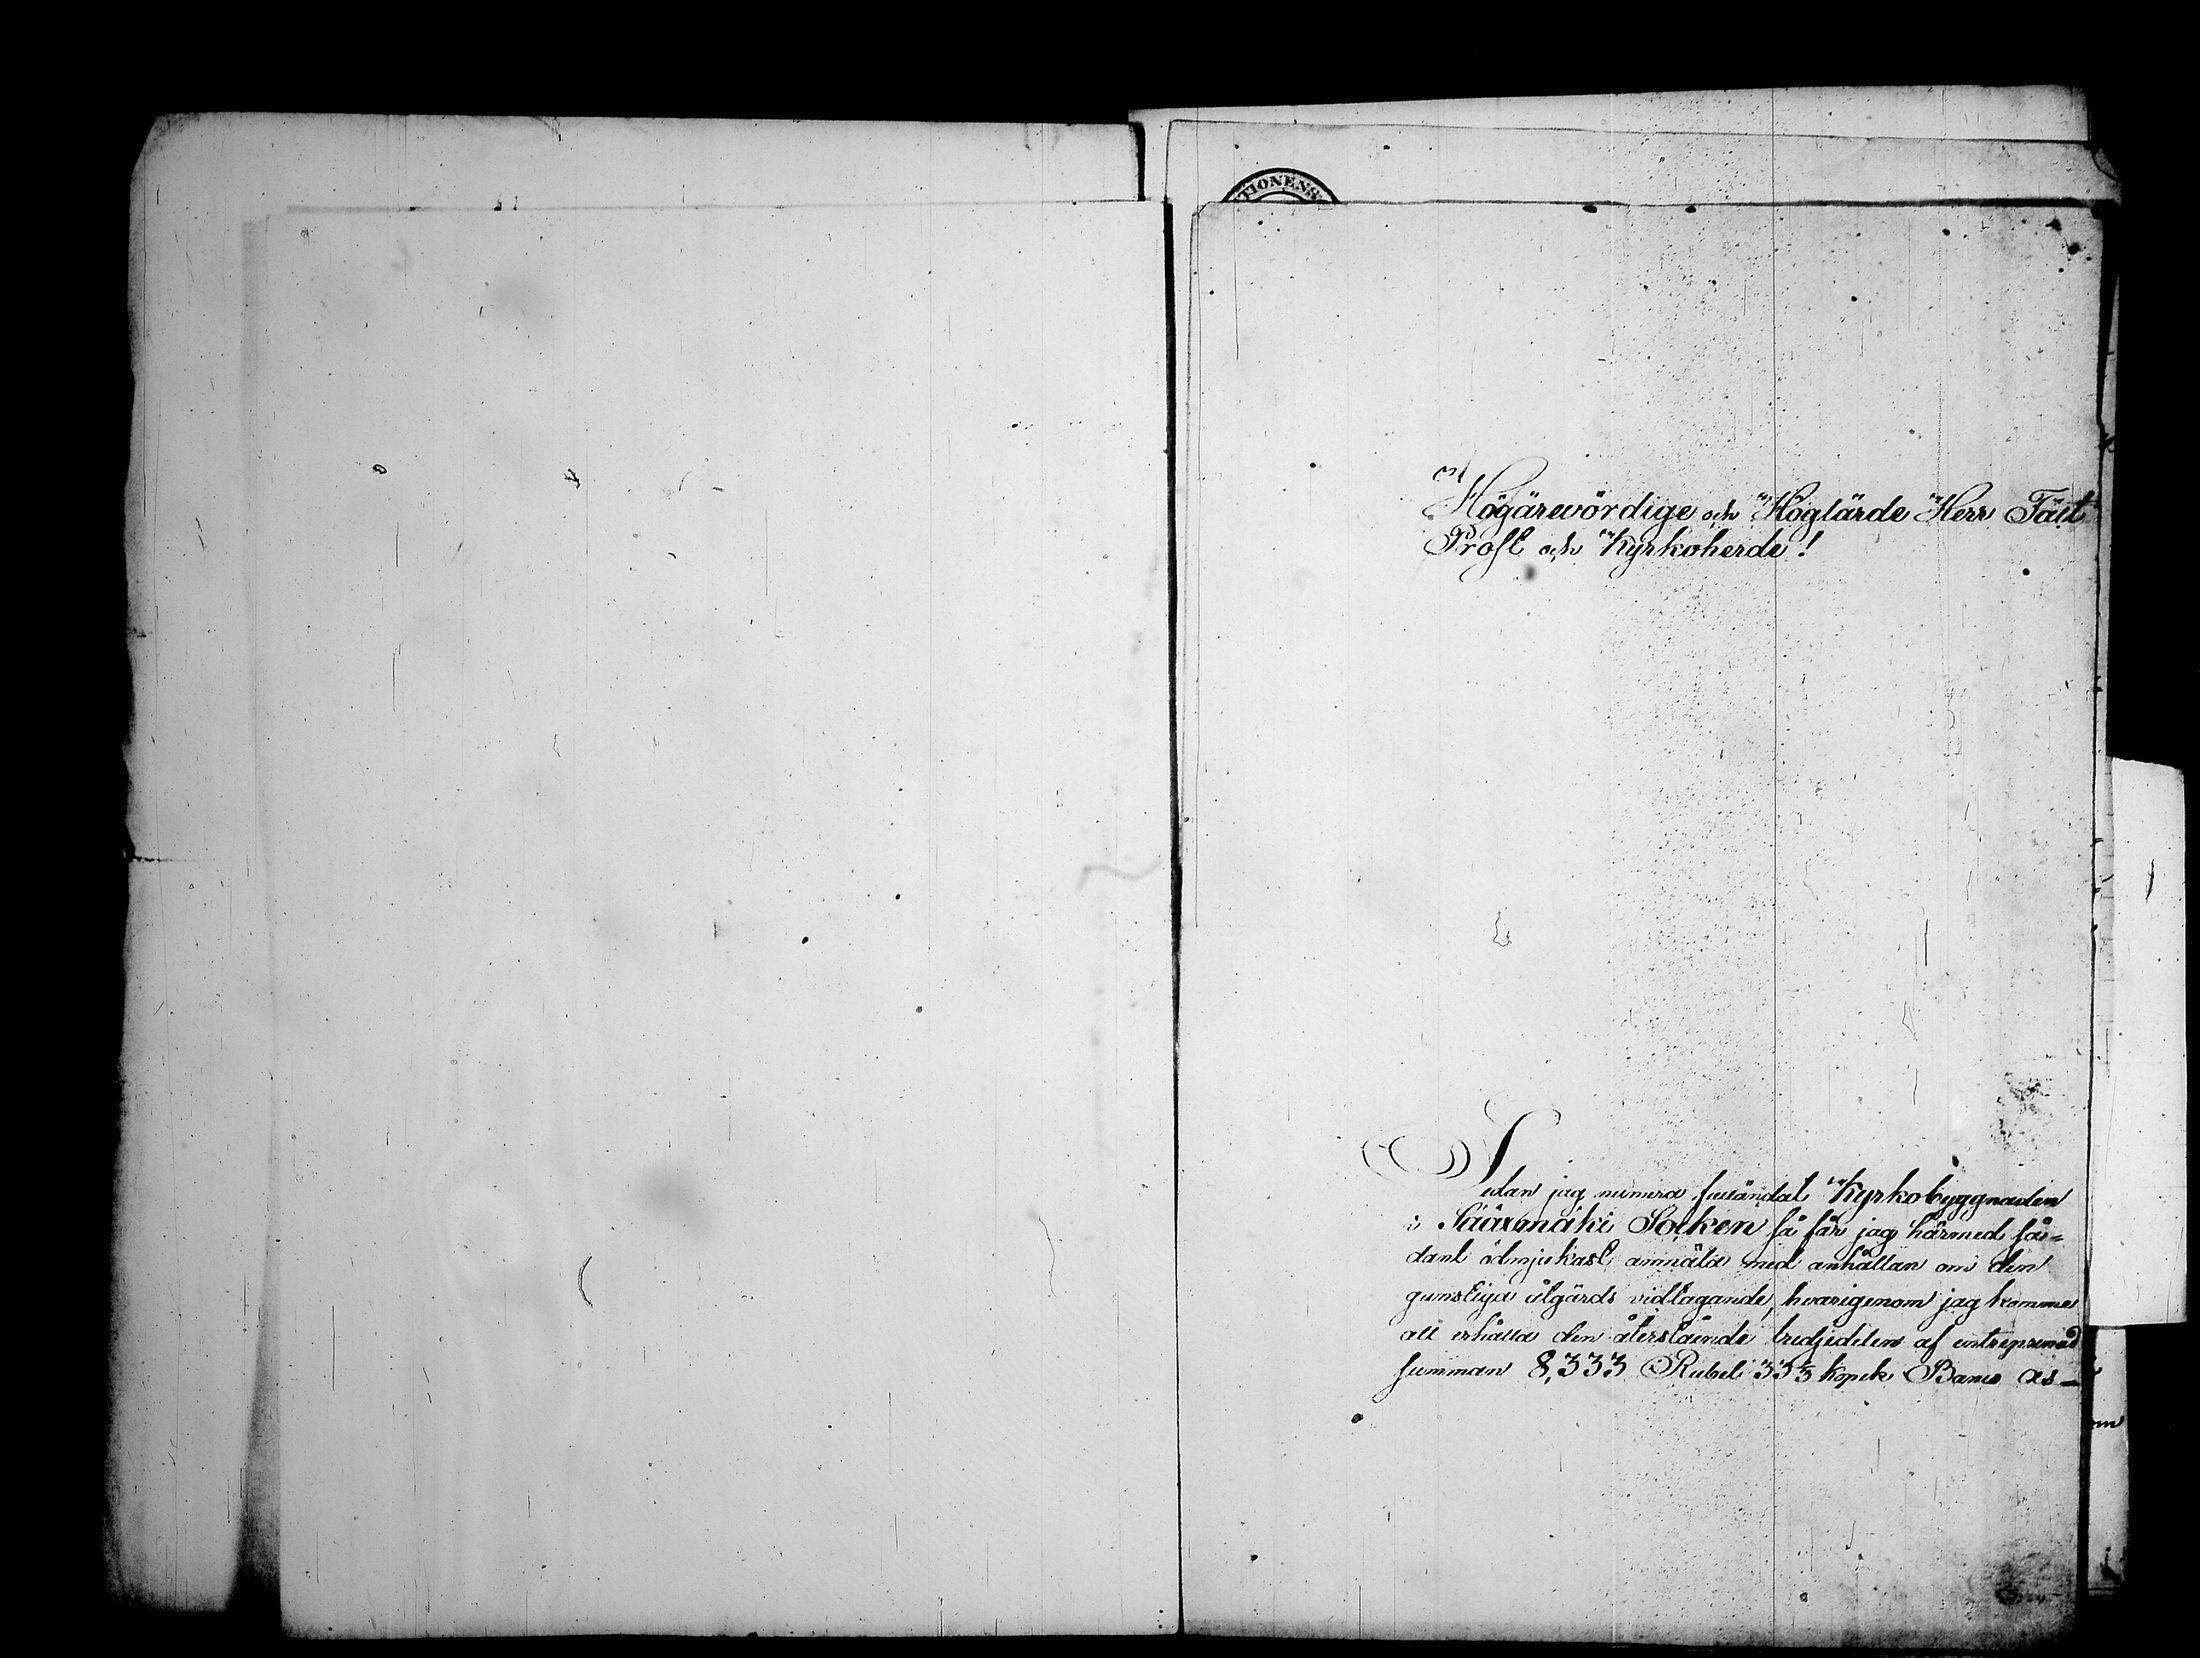 TIONENS
Högärewördige och Höglärde Herr Fält
Prost och Kyrkoherde!
Sedan jag numera fulländat Kyrkobyggnaden
i Sääxmäki Socken så får jag härmed så-
dant ödmjukast anmäla med anhållan om den
gunstiga åtgärds vidtagande, hvarigenom jag komme
att erhålla den återstående tredjedelen af entreprenad
summan 8,333 Rubel 33⅓ kopek Banco As-